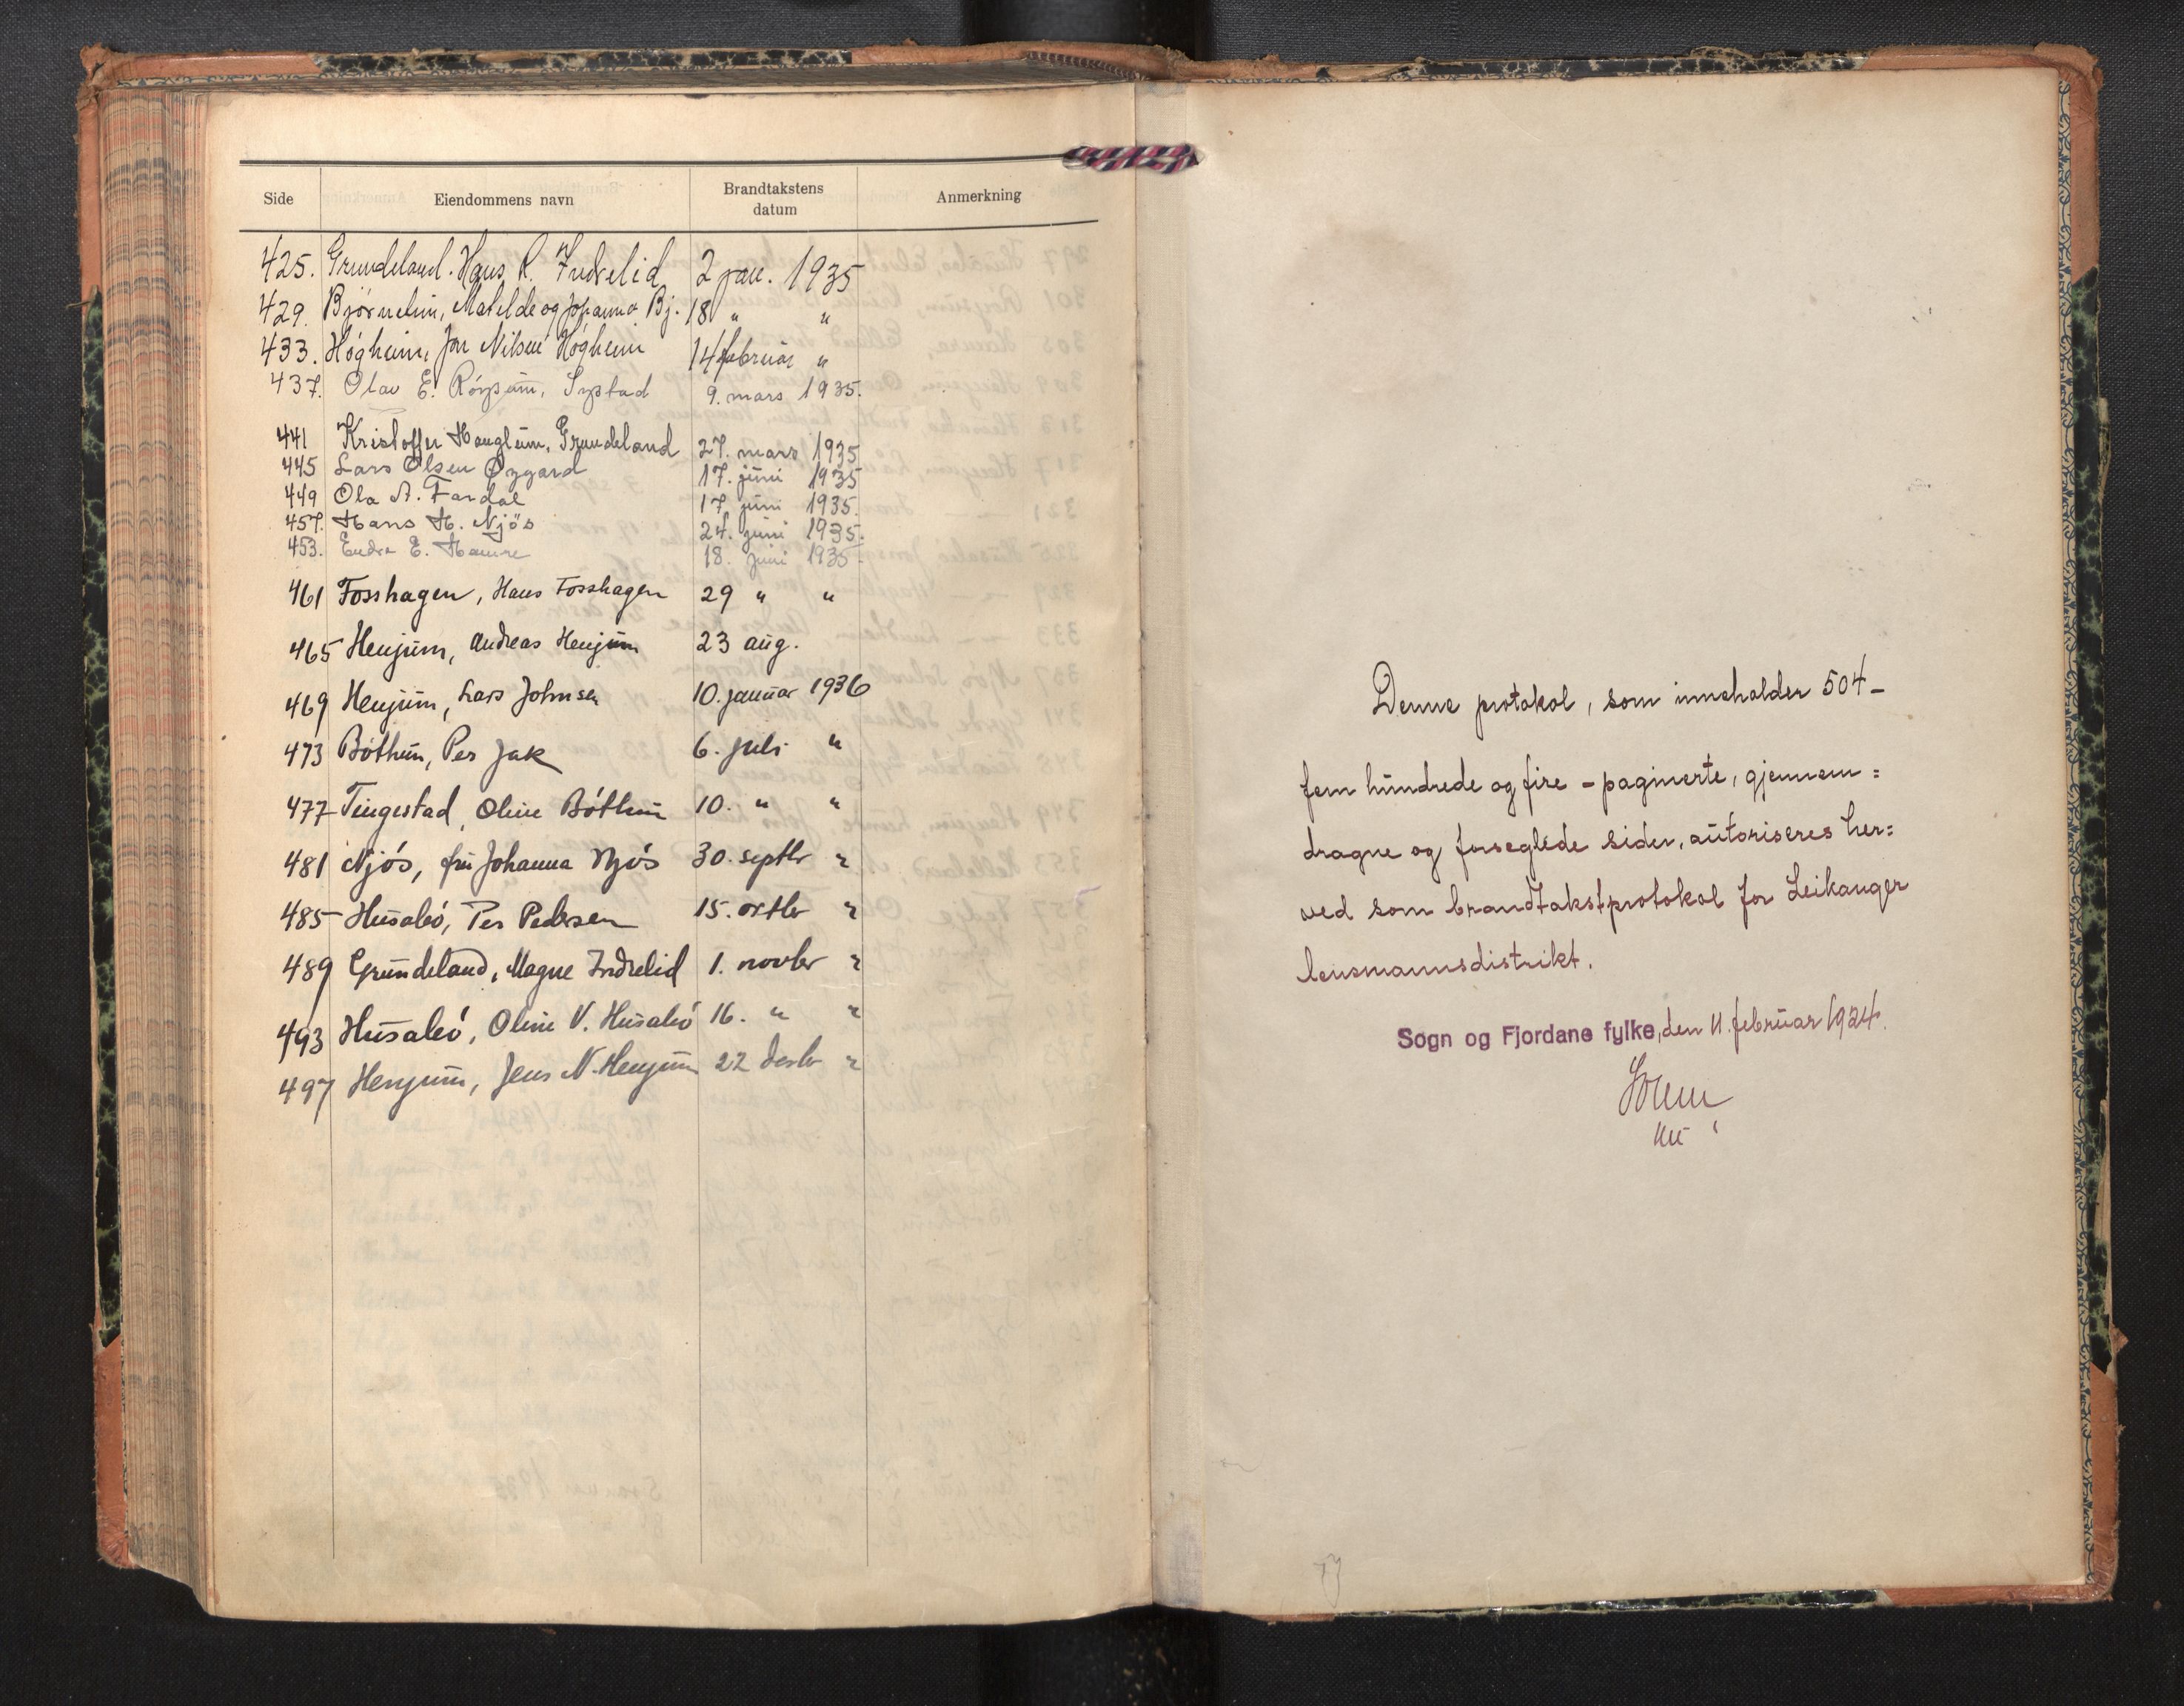 Side Eiendommens navn Brandtakstens datum Anmerkning
425. Grundeland. Hans R. Indrelid 2 jan. 1935
429. Bjørnelim, Matelde og Johanna Bj. 18 " "
433. Høgheim, Jon Nilsen Høgheim 14 februar "
437. Olav E. Røysum, Systad 9. mars 1935.
441 Kristoffer Hauglum, Grundeland 27. mars 1935
445 Lars Olsen Øygard 17. juni 1935
449 Ola A. Fardal 17. juni 1935.
457. Hans H. Njøs 24. juni 1935.
453. Endre E. Hamre 18. juni 1935.
461 Fosshagen, Hans Fosshagen 29 " "
465 Henjum, Andreas Henjum 23 aug.
469 Henjum, Lars Johnsen 10. januar 1936
473 Bøthun, Per Jak 6. juli "
477 Tingestad, Oline Bøthun 10. " "
481 Njøs, fru Johanna Njøs 30. septbr "
485 Husabø, Per Pedersen 15. octbr "
489 Grundeland, Magne Indrelid 1. novbr "
493 Husabø, Oline V. Husabø 16. " "
497 Henjum, Jens N. Henjum 22 desbr "
Denne protokol, som inneholder 504 –
fem hundrede og fire – paginerte, gjennem=
dragne og forseglede sider, autoriseres her=
ved som brandtakstprotokol for Leikanger
lensmannsdistrikt.
Sogn og Fjordane fylke, den 11. februar 1924.